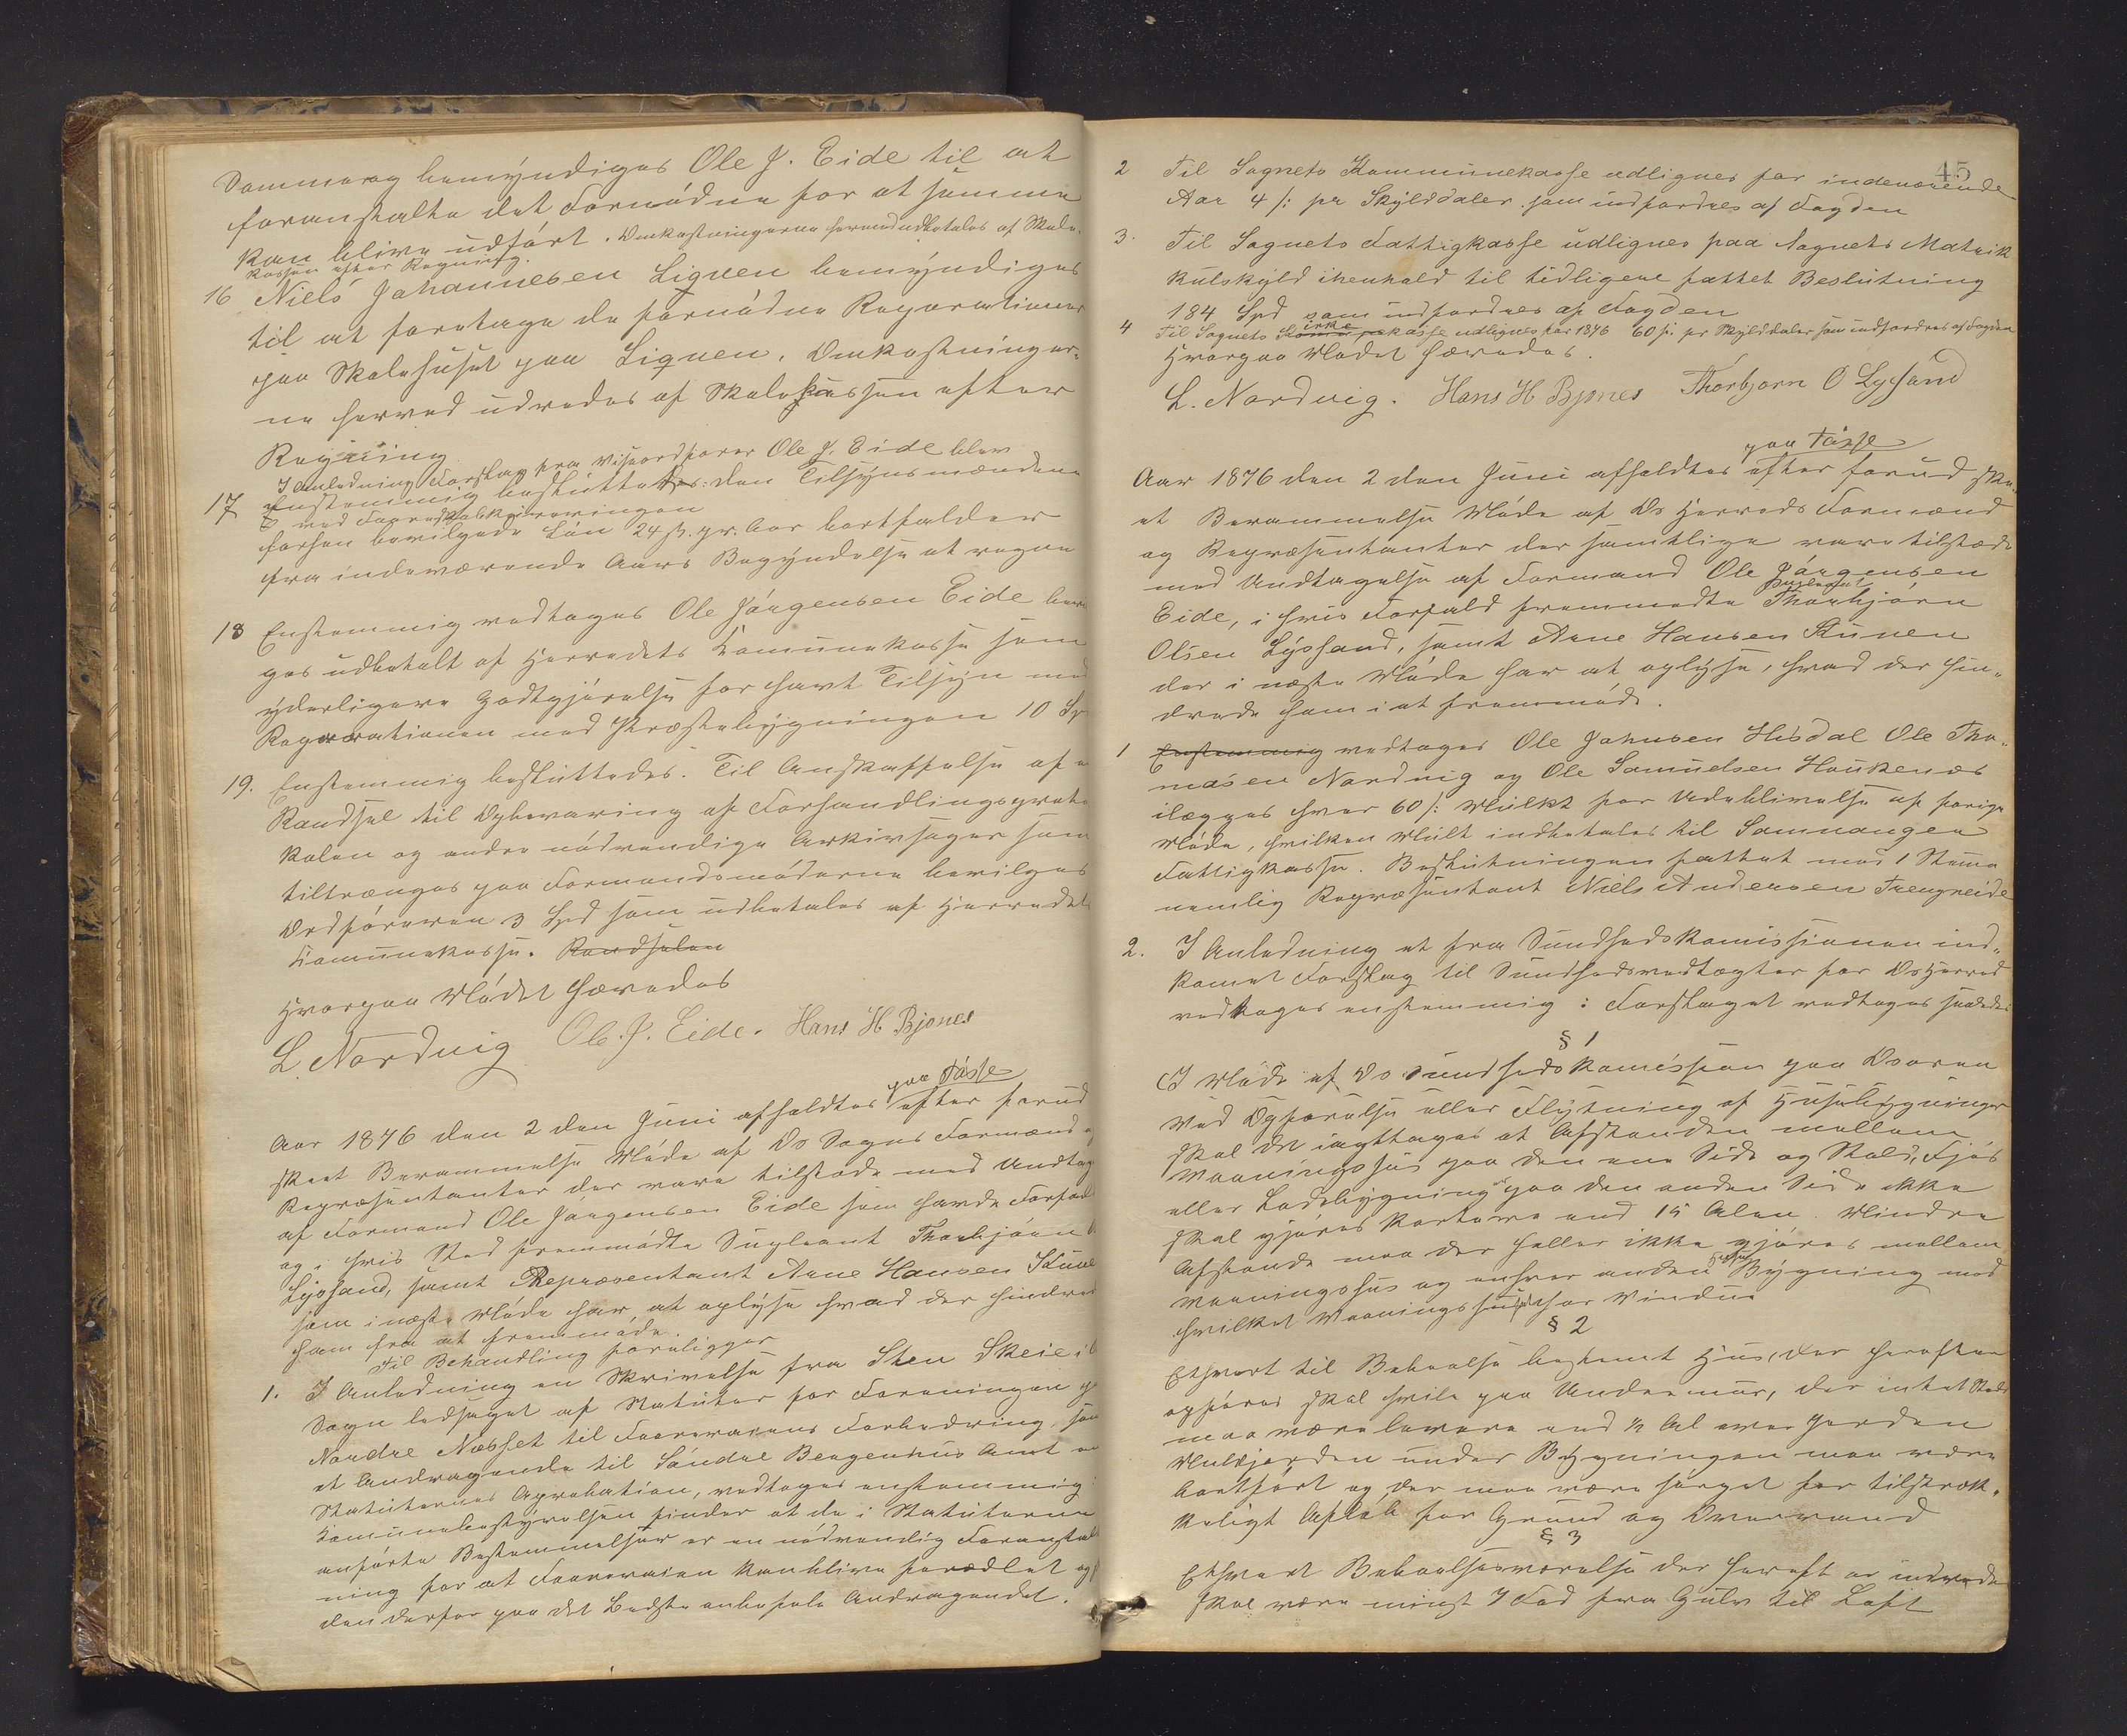 Sommer og bemyndiges Ole J. Eide til at
foranstalte det Fornødne for at samme
kan blive udført. Omkostningerne herved udbetales af Skole-
kassen efter Regning.
16 Niels Johannesen Liqven bemyndiges
til at foretage de fornødne Reparationer
paa Skolehuset paa Liqven. Omkostninger-
ne herved udredes af Skolekassen efter
Regning
I Anledning Forslag fra Viseordfører Ole J. Eide blev
17 Enstemmig besluttedes: den Tilsynsmændene
ved
forhen bevilgede Løn 24 s. pr. Aar bortfalder
fra indeværende Aars Begyndelse at regne
18 Enstemmig vedtages Ole Jørgensen Eide
ges udbetalt af Herredets Komunekasse som
yderligere Godtgjørelse for havt Tilsyn med
Reparationen med Præstebygningen 10 Sp
19. Enstemmig besluttedes. Til Anskaffelse af
Randsel til Opbevaring af Forhandlingsproto
kolen og andre nødvendige Arkivsager som
tiltrænges paa Formandsmøderne bevilges
Ordføreren 3 Spd som udbetales af Herredets
Komunekasse. Randselen
Hvorpaa Mødet hævedes
L. Nordvig Ole. J. Eide. Hans H Bjønes
paa Tøsse
Aar 1876 den 2 den Juni afholdtes efter forud
skeet Berammelse Møde af Os Sogns Formænd og
Repræsentanter der vare tilstede med Undtag
af Formand Ole Jørgensen Eide som havde Forfald
og i hvis Sted fremmødte Supleant Thorbjørn O
Lyshand, samt Repræsentant Arne Hansen Kuven
som i næste Møde har at oplyse hvad der hindred
ham fra at fremmøde.
Til Behandling foreligger
1. I Anledning en Skrivelse fra Sten Skeie i
Sogn ledsaget af Statuter for Foreningen paa
Nordre Næsset til Faareravlens Forbedring, samt
et Andragende til Søndre Bergenhus Amt om
Statuternes Aprobation, vedtoges enstemmig:
Komunebestyrelsen finder at de i Statuterne
anførte Bestemmelser er en nødvendig Foranstalt
ning for at Faareracen kan blive forædlet og
den derfor paa det Bedste anbefale Andragendet.
45
2 Til Sognets Kommunekasse udlignes for indeværende
Aar 4 s: pr Skylddaler som indfordres af Fogden
3. Til Sognets Fattigkasse udlignes paa Sognets Matrik
kulskyld ihenhold til tidligere fattet Beslutning
184 Spd som indfordres af Fogden
4 Til Sognets Kirkekasse udlignes for 1876 60 s: pr Skylddaler som indfordres af Fogden
Hvorpaa Mødet hævedes.
L. Nordvig. Hans H Bjønes Thorbjørn O Lysand
paa Tøsse
Aar 1876 den 2 den Juni afholdtes efter forud ske-
et Berammelse Møde af Os Herreds Formænd
og Repræsentanter der samtlige vare tilstede
med Undtagelse af Formand Ole Jørgensen
Eide, i hvis Forfald fremmødte Supleant Thorbjørn
Olsen Lyshand, samt Arne Hansen Kuven
der i næste Møde har at oplyse, hvad der hin-
drede ham i at fremmøde.
1 Enstemmig vedtages Ole Johnsen Hisdal Ole Tho-
masen Nordvig og Ole Samuelsen Haukenæs
ilægges hver 60 s: Mulkt for Udeblivelse af forrige
Møde, hvilken Mult indbetales til Samnangen
Fattigkasse. Beslutningen fattet mod 1 Stemme
nemlig Repræsentant Niels Andersen Trengereide
2. I Anledning et fra Sundhedskomissionen ind-
komet Forslag til Sundhedsvedtægter for Os Herred
vedtoges enstemmig: Forslaget vedtages saaledes
§ 1
I Møde af Os Sundhedskomission paa Osøren
Ved Opførelse eller Flytning af Husebygninger
skal det iagttages at Afstanden mellem
Vaaningshus paa den ene Side og Stald, Fjøs
eller Ladebygning paa den anden Side ikke
skal gjøres kortere end 15 Alen. Mindre
Afstande maa der heller ikke gjøres mellem
Vaaningshus og enhver anden Bygning mod
hvilket Vaaningshuset har Vindue
§ 2
Ethvert til Beboelse bestemt Hus, der herefter
opføres skal hvile paa Undermur, der intet Sted
maa være lavere end ½ Al over Jorden
Muldjorden under Bygningen maa være
bortført og der maa være sørget for tilstræk-
keligt Afløb for Grund og Overvand
§ 3
Ethvert Beboelsesværelse der hereft er indrede
skal være mingst 4 Fod fra Gulv til Loft